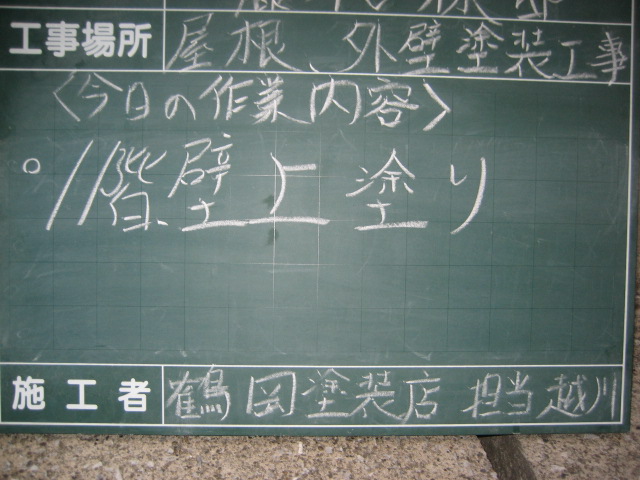 工事場所 屋根、外壁塗装工事
〈今日の作業内容〉
。1階壁上塗り
施工者 鶴岡塗装店 担当越川